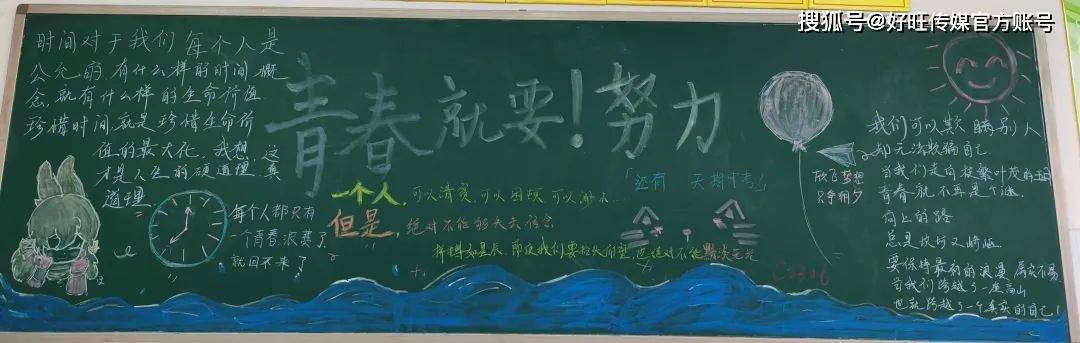 搜狐号@好旺传媒官方账号
时间对于我们每个人是
公允的,有什么样的时间概
念,就有什么样的生命价值
珍惜时间就是珍惜生命价
值的最大化,我想,这
才是人生的硬道理,真
道理
青春就要!努力
每个人都只有
一个青春浪费了
就回不来了
一个人,可以清贫,可以困顿,可以
但是,绝对不能够失去信念
即使我们要抬头仰望,也绝对不能黯淡无光
「还有 天期中考」
放飞梦想
只争朝夕
我们可以欺瞒别人
却无法欺骗自己
当我们走向枝繁叶茂的
青春就不再是个谜
向上的路
总是坎坷又崎岖
要保持最初的浪漫 属实不易
当我们跨越了一座高山
也就跨越了一个真实的自己!